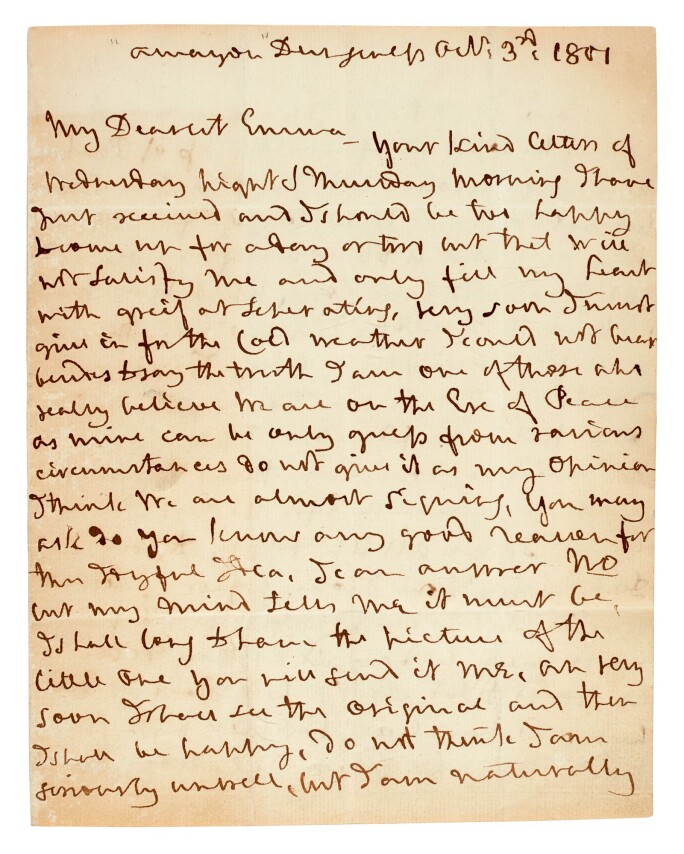 "Amazon" Dungeness Octr: 3rd: 1801
My Dearest Emma
Your kind letters of
Wednesday night & Thursday morning I have
Just received and I should be too happy
to come up for a day or two but that will
not satisfy me and only fill my heart
with greif at seperating, very soon I must
give in for the Cold weather I could not bear
besides to say the truth I am one of those who
really believe We are on the Eve of Peace
as mine can be only guess from various
circumstances do not give it as my opinion
I think We are almost signing, You may
ask do you know any good reason for
this Joyful Idea, I can answer No
but my mind tells me it must be,
I shall long to have the picture of the
little one you will send it me, an very
soon I shall see the original and then
I shall be happy, do not think I am
seriously unwell, but I am naturally